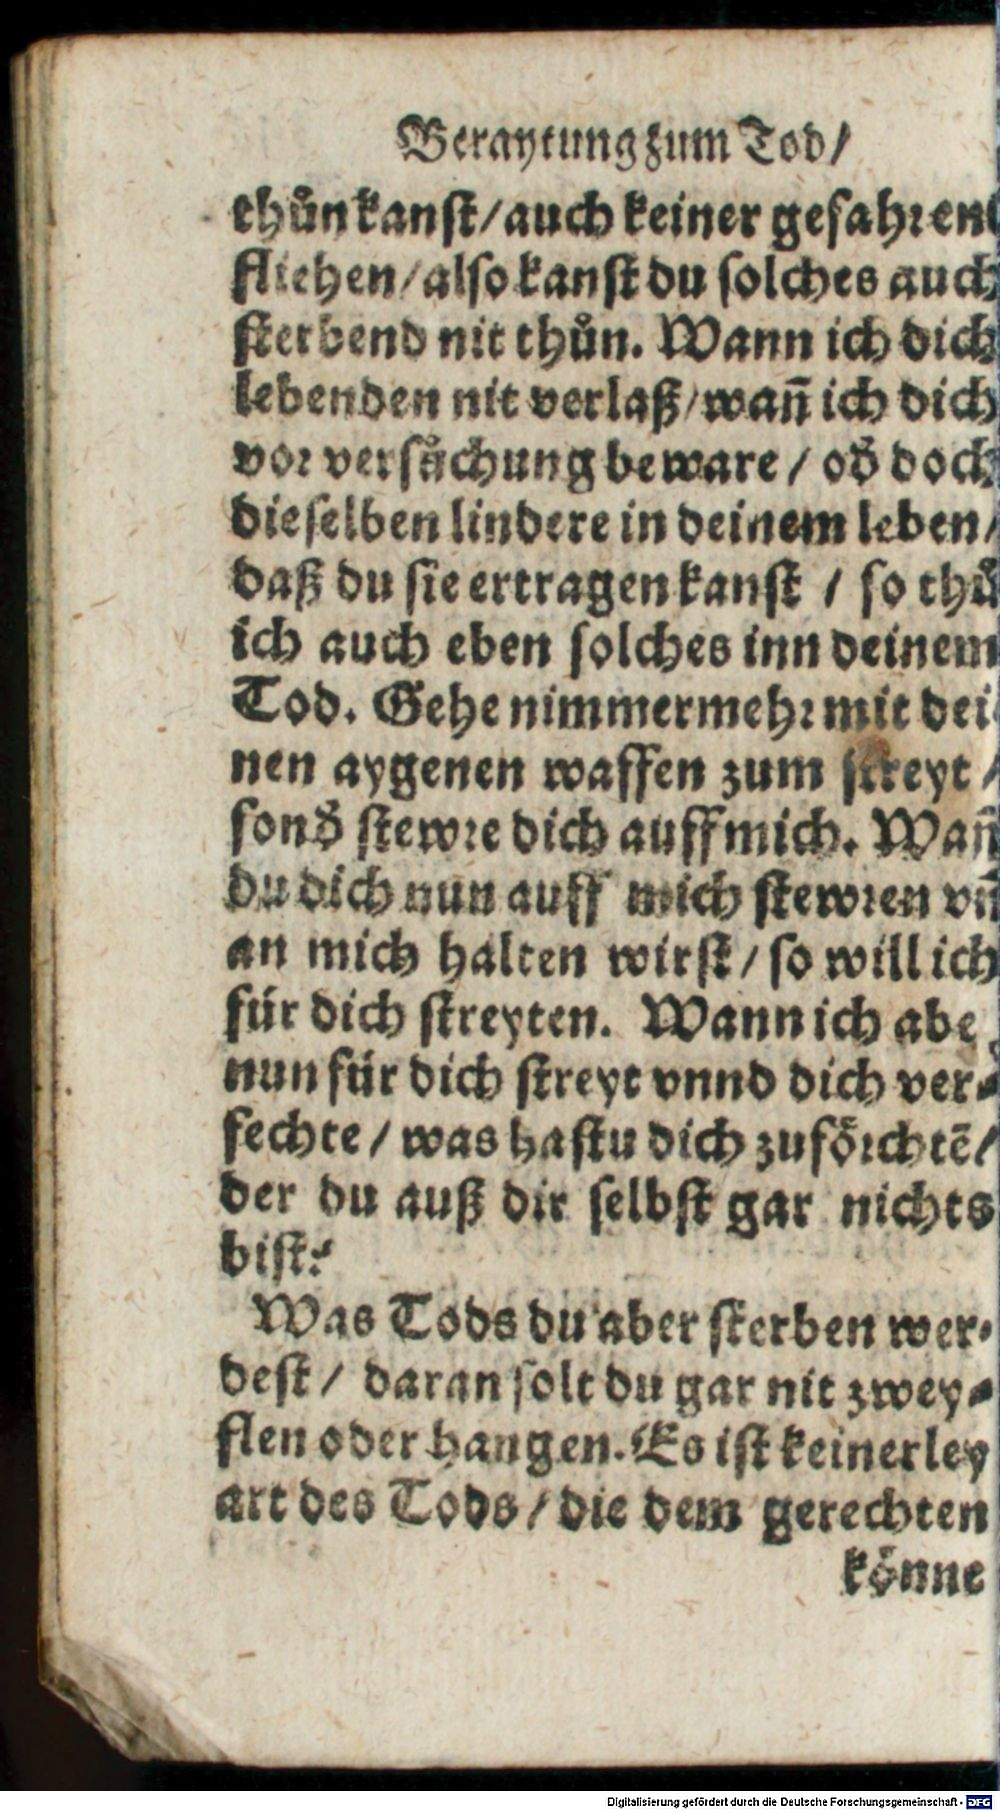 Beraytung zum Tod/
thůn kanst/auch keiner gefahr ent
fliehen/also kanst du solches auch
sterbend nit thůn. Wann ich dich
lebenden nit verlaß/wañ ich dich
vor versůchung beware / od̃ doch
dieselben lindere in deinem leben/
daß du sie ertragen kanst / so thů
ich auch eben solches inn deinem
Tod. Gehe nimmermehr mit dei
nen aygenen waffen zum streyt /
sond̃ stewre dich auff mich. Wañ
du dich nun auff mich stewren vñ
an mich halten wirst/so will ich
für dich streyten. Wann ich abe
nun für dich streyt vnnd dich ver-
fechte/was hastu dich zufőrchtē/
der du auß dir selbst gar nichts
bist?
Was Tods du aber sterben wer-
dest/ daran solt du gar nit zwey-
flen oder hangen. Es ist keinerley
art des Tods/die dem gerechten
kőnne
Digitalisierung gefördert durch die Deutsche Forschungsgemeinschaft - DFG